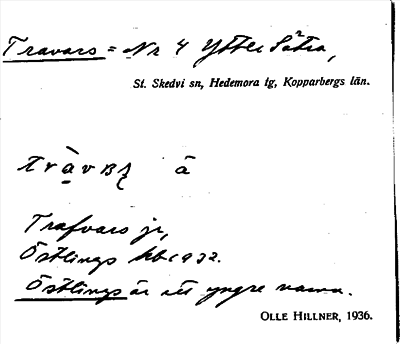 Travars = Nr 4 Ytter Sätra,
St. Skedvi sn, Hedemora tg, Kopparbergs län.
å
Trafvars jr,
Östlings kbc 1932.
Östlings är ett yngre namn.
OLLE HILLNER, 1936.